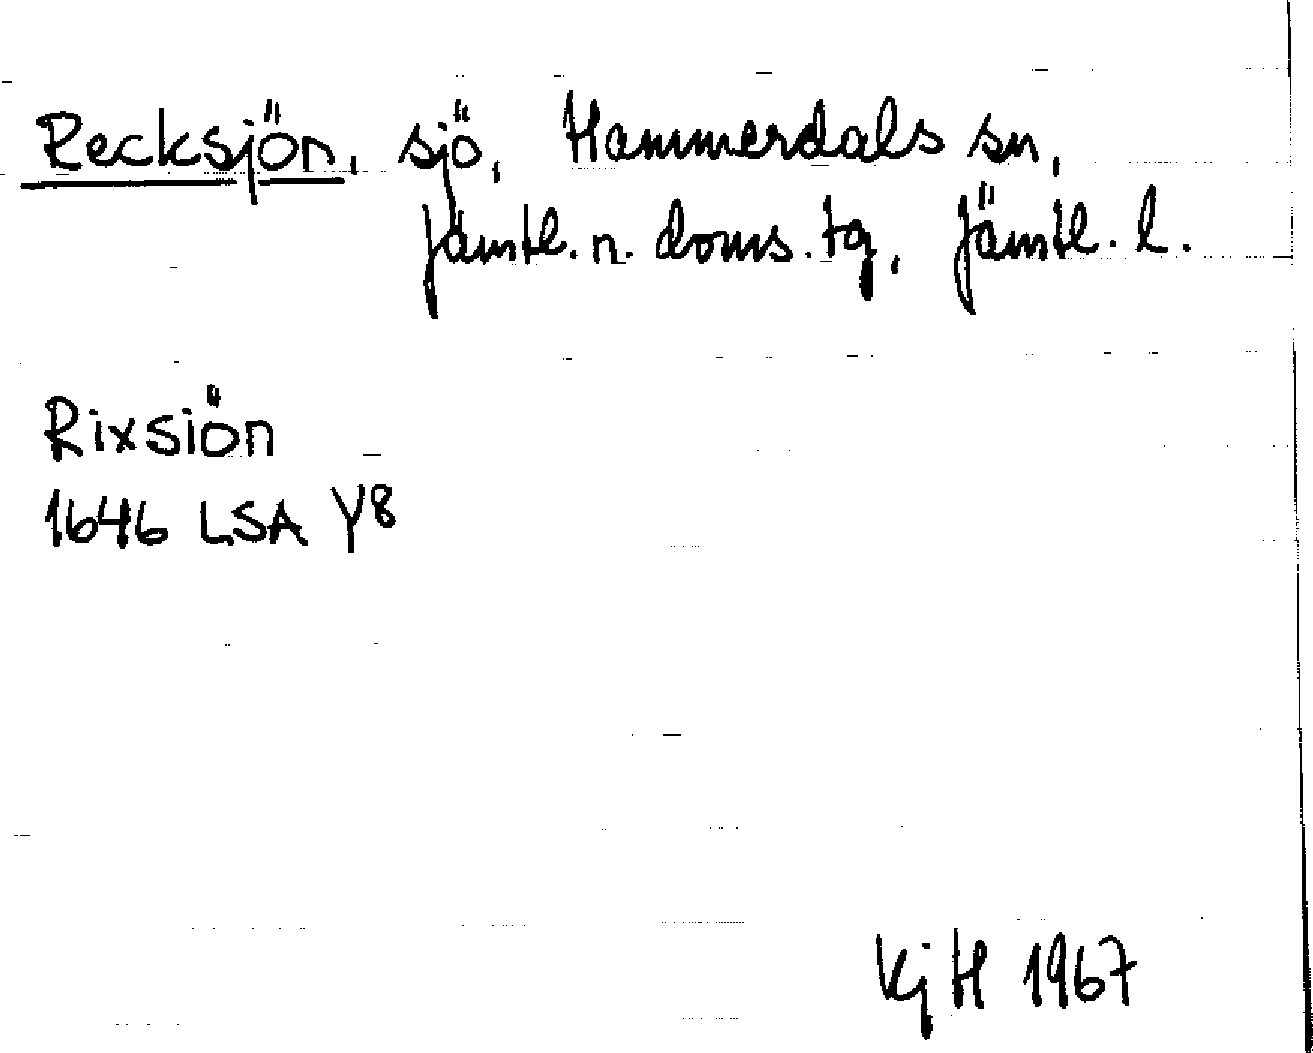 Recksjön, sjö, Hammerdals sn,
Jämtl. n. doms. tg, Jämtl. l.
Rixsiön
1646 LSA Y8
KjH 1967